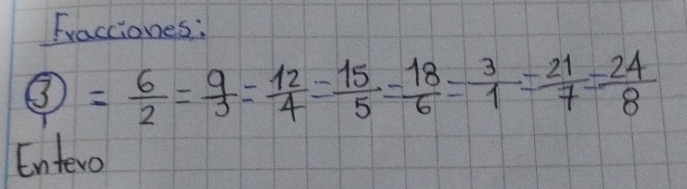 Fracciones:
3 = 6/2 = 9/3 = 12/4 = 15/5 = 18/6 = 3/1 = 21/7 = 24/8
Entero